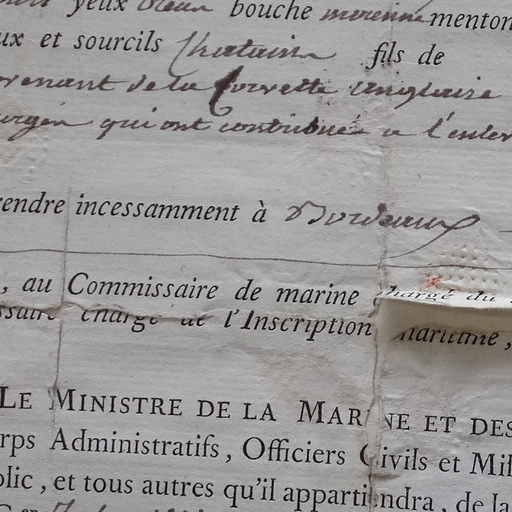 yeux bleux bouche moienne menton
ux et sourcils Chatains fils de
venant de la Corvette anglaise
qui ont contribués a l'enlev
endre incessamment à Bordeaux
, au Commissaire de marine chargé du
ssaire chargé de l'Inscription maritime,
LE MINISTRE DE LA MARINE ET DES
rps Administratifs, Officiers Civils et Mil
blic, et tous autres qu'il appartiendra, de la